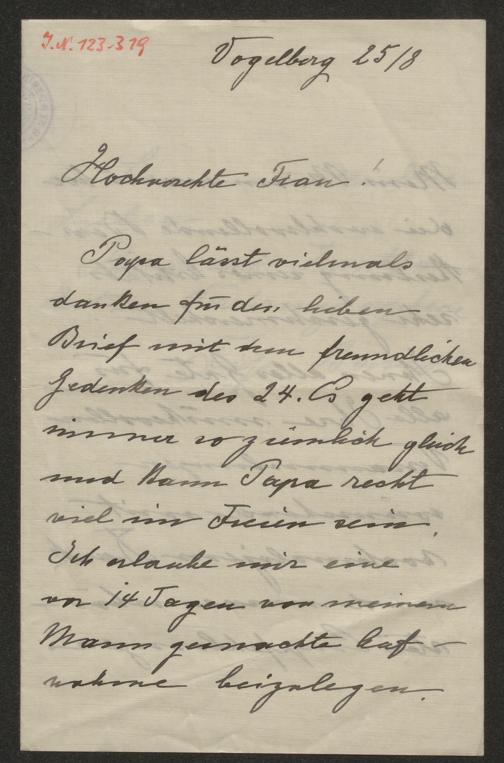 J.N. 123.319
Vogelberg 25/8
Hochverehrte Frau!
Papa lässt vielmals
danken für den lieben
Brief mit dem freundlichen
Gedenken des 24. Es geht
immer so ziemlich gleich
und kann Papa recht
viel im Freien sein.
Ich erlaube mir eine
vor 14 Tagen von meinem
Mann gemachte Auf-
nahme beizulegen.